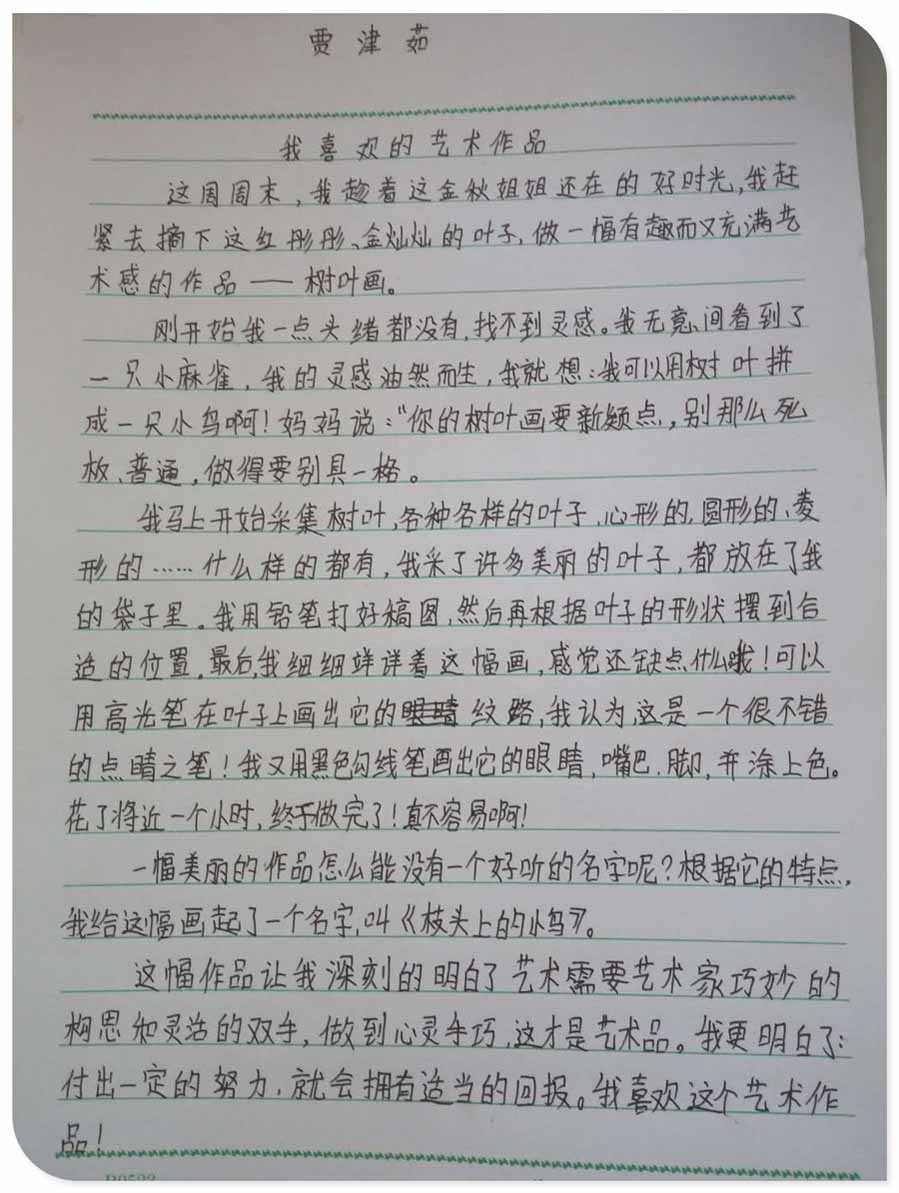 贾津茹
我喜欢的艺术作品
这周周末，我趁着这金秋姐姐还在的好时光，我赶
紧去摘下这红彤彤、金灿灿的叶子，做一幅有趣而又充满艺
术感的作品——树叶画。
刚开始我一点头绪都没有，找不到灵感。我无意间看到了
一只小麻雀，我的灵感油然而生，我就想：我可以用树叶拼
成一只小鸟啊！妈妈说：“你的树叶画要新颖点，别那么死
板、普通，做得要别具一格。
我马上开始采集树叶，各种各样的叶子、心形的，圆形的、菱
形的……什么样的都有，我采了许多美丽的叶子，都放在了我
的袋子里。我用铅笔打好稿图，然后再根据叶子的形状摆到合
适的位置。最后，我细细端详着这幅画，感觉还缺点什么哦！可以
用高光笔在叶子上画出它的纹路，我认为这是一个很不错
的点睛之笔！我又用黑色勾线笔画出它的眼睛，嘴巴，脚，并涂上色。
花了将近一个小时，终于做完了！真不容易啊！
一幅美丽的作品怎么能没有一个好听的名字呢？根据它的特点，
我给这幅画起了一个名字，叫《枝头上的小鸟》。
这幅作品让我深刻的明白了艺术需要艺术家巧妙的
构思和灵活的双手，做到心灵手巧，这才是艺术品。我更明白了：
付出一定的努力，就会拥有适当的回报。我喜欢这个艺术作
品！